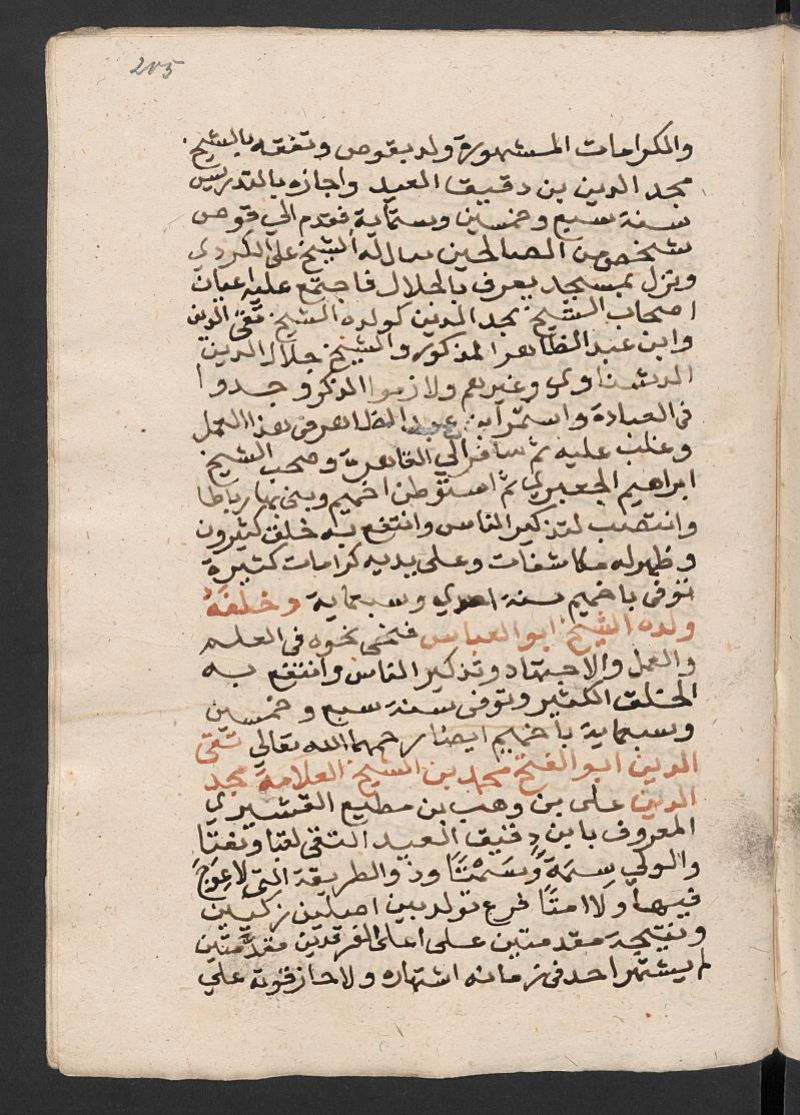 205
والمكرامات المشهورة ولد بقوص وتفقه بالشيخ
مجد الدين بن دقيق العيد واجازه بالتدريس
سنة سبع وخمسين وستماية فقدم الي قوص
شخص من الصالحين يقال له الشيخ علي الكردي
ونزل بمسجد يعرف بالجلال فاجتمع عليه اعيان
اصحاب الشيخ مجد الدين كولده الشيخ تقي الدين
وابن عبد الظاهر المذكور والشيخ جلال الدين
الدشناوي وغيرهم ولازموا الذكر وجدوا
في العبادة واستمر ابن عبد الظاهر في هذا العمل
وغلب عليه ثم سافر الي القاهرة وصحب الشيخ
ابراهيم الجعبري ثم استوطن اخميم وبني بها رباطا
وانتصب لتذكير الناس وانتفع به خلق كثيرون
وظهر له مكاشفات وعلي يديه كرامات كثيرة
توفي باخميم سنة احدي وسبعماية وخلفه
ولده الشيخ ابو العباس فنحي نحوه في العلم
والعمل والاجتهاد وتذكير الناس وانتفع به
الخلق الكثير وتوفي سنة سبع وخمسين
وسبعماية باخميم ايضا رحمهما الله تعالي تقي
الدين ابو الفتح محمد بن الشيخ العلامة مجد
الدين علي بن وهب بن مطيع القشيري
المعروف بابن دقيق العيد التقي لقبا ونعتا
والولي سِمَةً وسَمْتًا وذو الطريقة التي لا عِوَجَ
فيها ولا امتًا فرع تولد بين اصلين زكيين
ونتيجة مقدمتين علي اعلي الفرقدين مقدّمتين
لم يشتهر احد في زمانه اشتهاره ولا حاز قوته علي